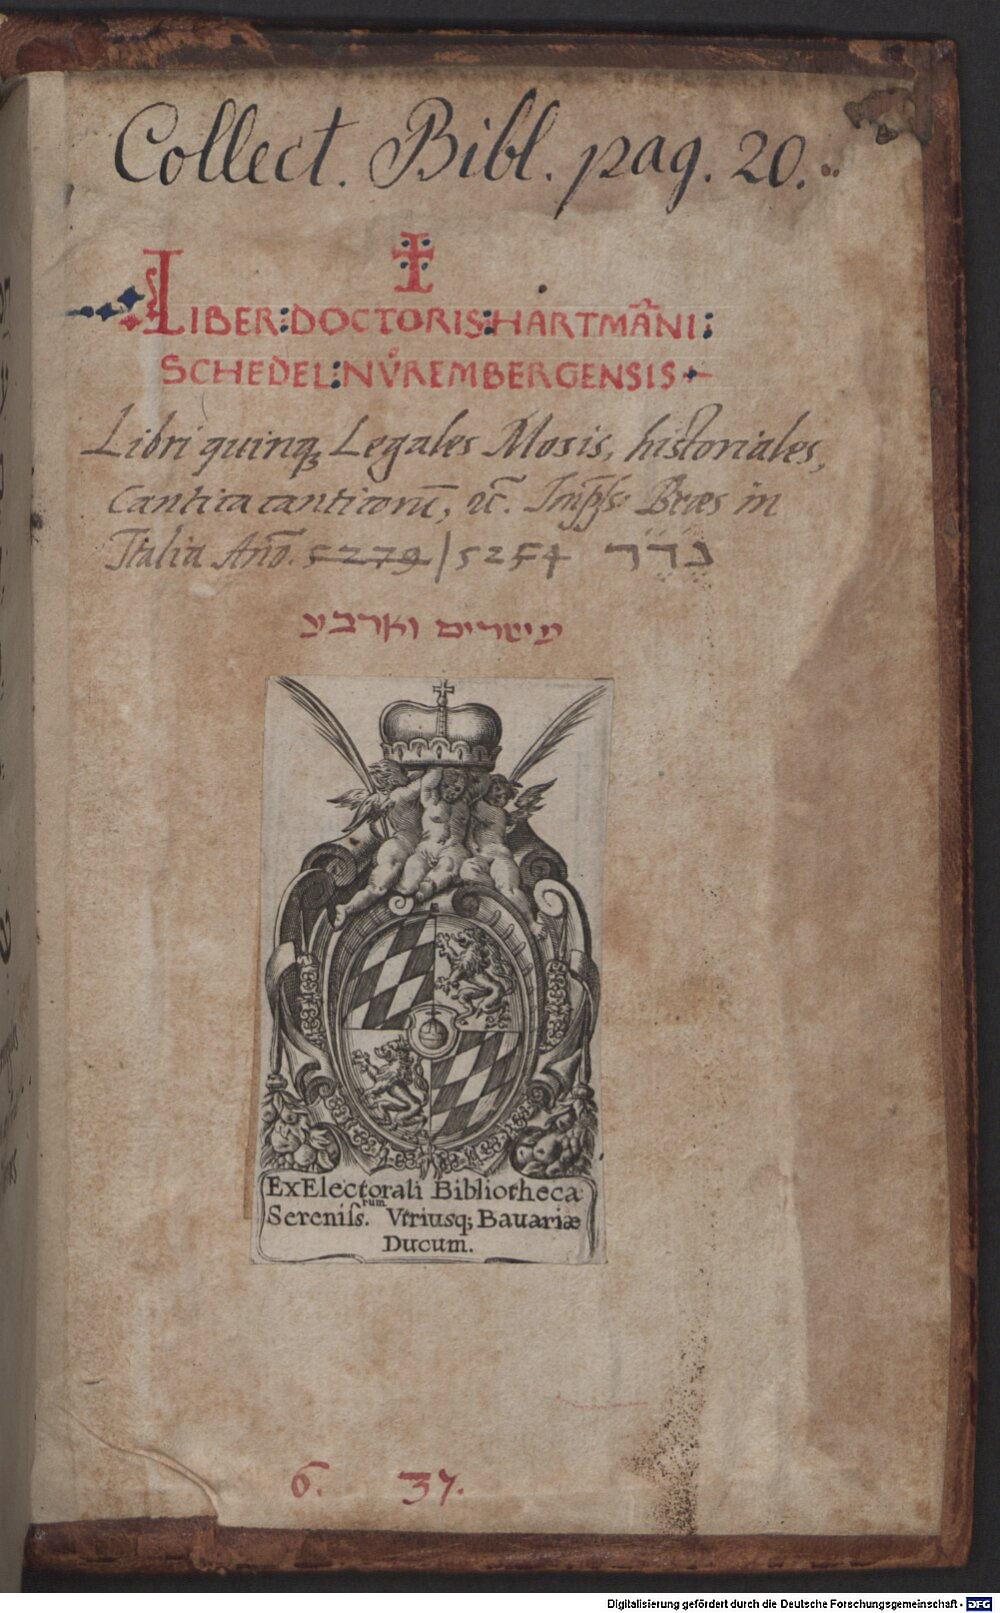 Collect. Bibl. pag. 20.
LIBER : DOCTORIS : HARTMA͂NI :
SCHEDEL : NV̊REMBERGENSIS
Libri quinq; Legales Mosis, historiales,
Cantica canticorũ, &c̃. Brães in
Italia Añо. 5279 / 5254 נדר
עישרים וארבע
Ex Electorali Bibliotheca
Sereniſs.rum Vtriusq; Bauariæ
Ducum.
6. 37.
Digitalisierung gefördert durch die Deutsche Forschungsgemeinschaft - DFG